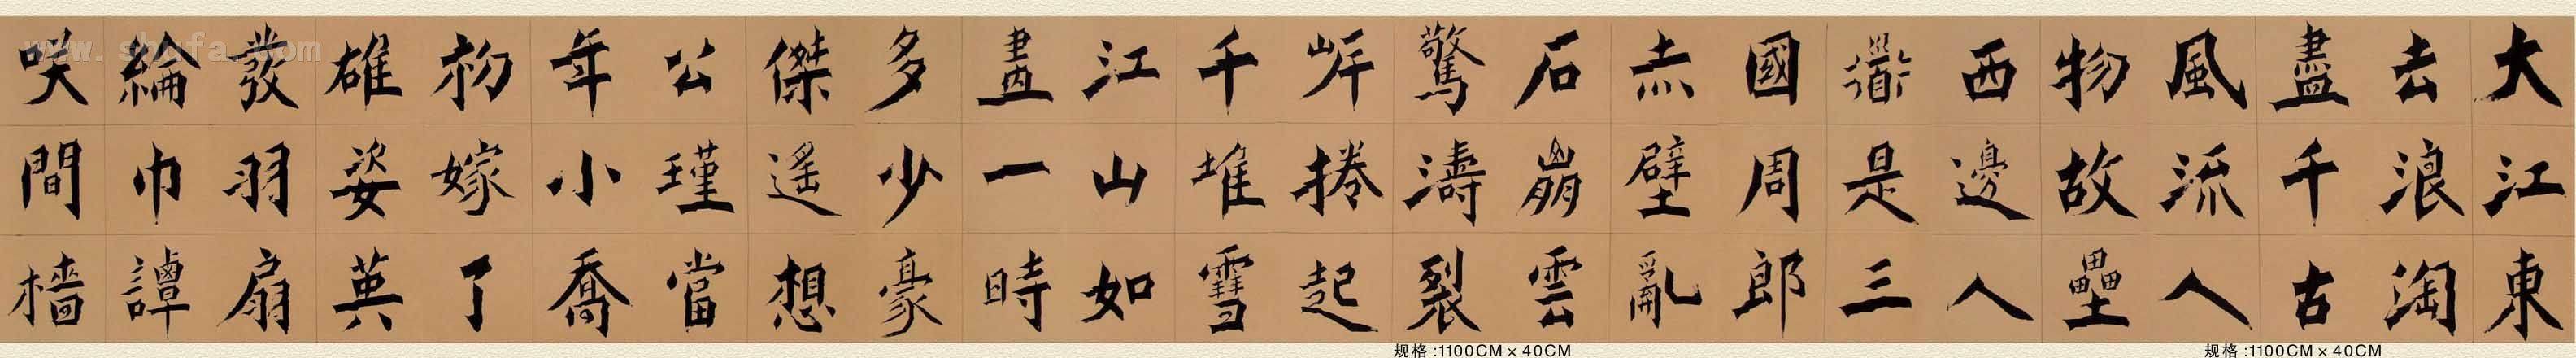 大江東
去浪淘
盡千古
風流人
物故壘
西邊人
衟是三
國周郎
赤壁亂
石崩雲
驚濤裂
岸捲起
千堆雪
江山如
畫一時
多少豪
傑遙想
公瑾當
年小喬
初嫁了
雄姿英
發羽扇
綸巾譚
咲間檣
www.shufa.com
规格 :1100CM × 40CM
规格 :1100CM × 40CM